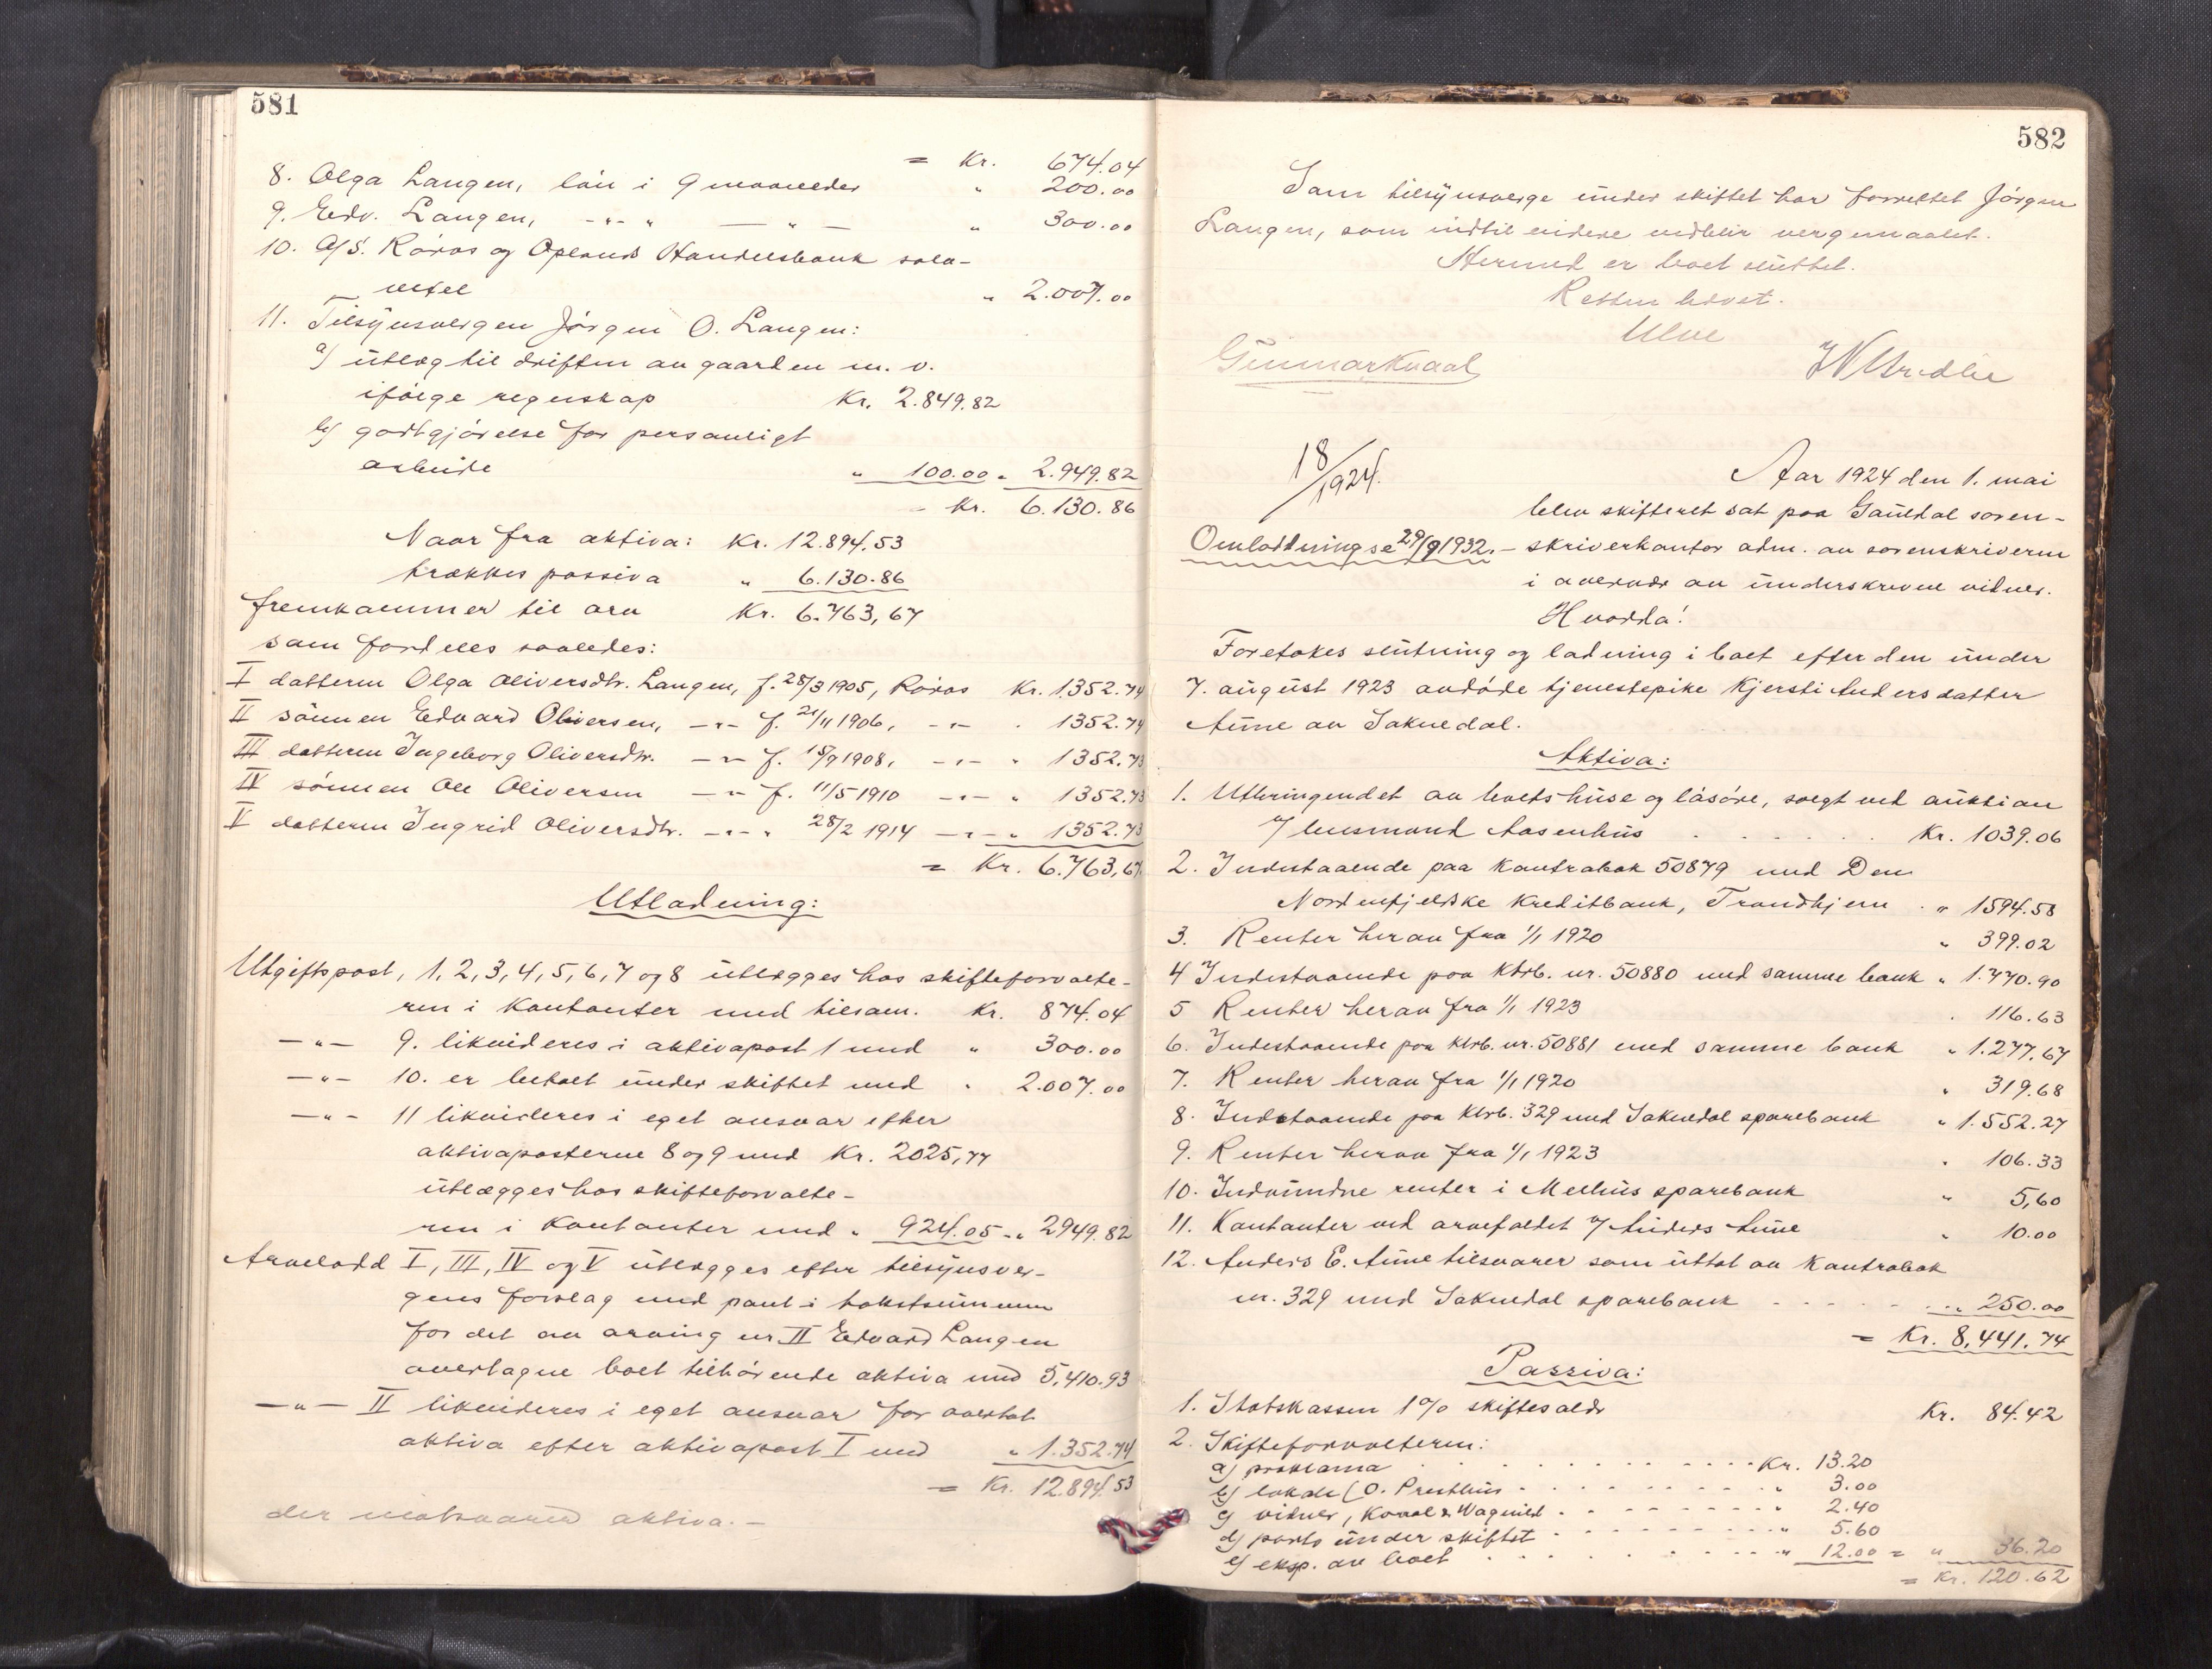 581
= Kr. 674.04
8. Olga Langen, lån i 9 maaneder " 200.00
9. Edv. Langen, -"- " — " — " 300.00
10. A/S. Röros og Oplands Handelsbank sola-
veksel " 2.007.00
11. Tilsynsvergen Jörgen O. Langen:
a) utlæg til driften av gaarden m. v.
ifölge regnskap Kr. 2.849.82
b) godtgjörelse for personligt
arbeide " 100.00 " 2.949.82
Kr. 6.130.86
Naar fra aktiva: Kr. 12.894.53
trækkes passiva " 6.130.86
fremkommer til arv Kr. 6.763,67
som fordeles saaledes:
I datteren Olga Oliversdtr. Langen, f. 28/3 1905, Röros Kr. 1.352.74
II sönnen Edvard Oliversen, -"- f. 21/11 1906, -"- " 1352.74
III datteren Ingeborg Oliversdtr. -"- f. 15/7 1908, -"- " 1352.73
IV sönnen Ole Oliversen -"- f. 11/5 1910 -"- " 1352.73
V datteren Ingrid Oliversdtr. -"- " 28/2 1914 -"- " 1352.73
= Kr. 6.763,67
Utlodning:
Utgiftspost, 1, 2, 3, 4, 5, 6, 7 og 8 utlægges hos skifteforvalte-
ren i kontanter med tilsam. Kr. 874.04
-"- 9. likvideres i aktivapost 1 med " 300.00
-"- 10. er betalt under skiftet med " 2.007.00
-"- 11 likvideres i eget ansvar efter
aktivaposterne 8 og 9 med Kr. 2025,77
utlægges hos skifteforvalte-
ren i kontanter med " 924.05 " 2949.82
Arvelodd I, III, IV og V utlægges efter tilsynsver-
gens forslag med pant i takstsummen
for det av arving nr. II Edvard Langen
overtagne boet tilhörende aktiva med 5.410.93
-"- II likvideres i eget ansvar for overtat
aktiva efter aktivapost I med " 1.352.74
= Kr. 12.894.53
der motsvarer aktiva. -
582
Som tilsynsverge under skiftet har forrettet Jörgen
Langen, som indtil videre vedblir vergemaalet.
Hermed er boet sluttet.
Retten hævet.
Ulve
Gunnar Kvaal
18/1924.
Omlodning se 29/9 1932. -
Aar 1924 den 1. mai
blev skifteret sat paa Gauldal soren-
skriverkontor adm. av sorenskriveren
i overvær av underskrevne vidner.
Hvorda!
Foretokes slutning og lodning i boet efter den under
7. august 1923 avdöde tjenestepike Kjersti Andersdatter
Aune av Soknedal.
Aktiva:
1. Utbringendet av boets huse og lösöre, solgt ved auktion
v/ lensmand Aasenhus . . . . . . Kr. 1039.06
2. Indestaaende paa kontrabok 50879 med Den
Nordenfjeldske Kreditbank, Trondhjem . " 1594.58
3. Renter herav fra 1/1 1920 " 399.02
4 Indestaaende paa Ktrb. nr. 50880 med samme bank " 1.770.90
5 Renter herav fra 1/1 1923 " 116.63
6. Indestaaende paa Ktrb. nr. 50881 med samme bank " 1.277.67
7. Renter herav fra 1/1 1920 " 319.68
8. Indestaaende paa Ktrb. 329 med Soknedal sparebank " 1.552.27
9. Renter herav fra 1/1 1923 " 106.33
10. Indvundne renter i Melhus sparebank " 5,60
11. Kontanter ved arvefaldet v/ Anders Aune " 10.00
12. Anders E. Aune tilsvarer som uttat av kontrabok
nr. 329 med Soknedal sparebank - - - - - " 250.00
= Kr. 8,441.74
Passiva:
1. Statskassen 1% skiftesalær Kr. 84.42
2. Skifteforvalteren:
a) proklama . . . . . . Kr. 13.20
b) lokale (O. Presthus . . . . . " 3.00
c) vidner, Kvaal & Wagnild . . . . " 2.40
d) porto under skiftet . . . . . " 5.60
e) eksp. av boet . . . . . " 12.00 = " 36.20
= Kr. 120.62